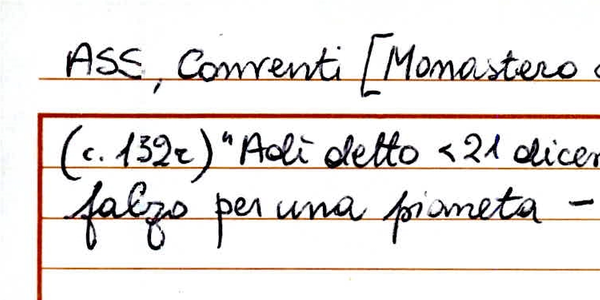 ASS, Conventi [Monastero
(c. 132r) "Adì detto <21 dicem
falzo per una pianeta –